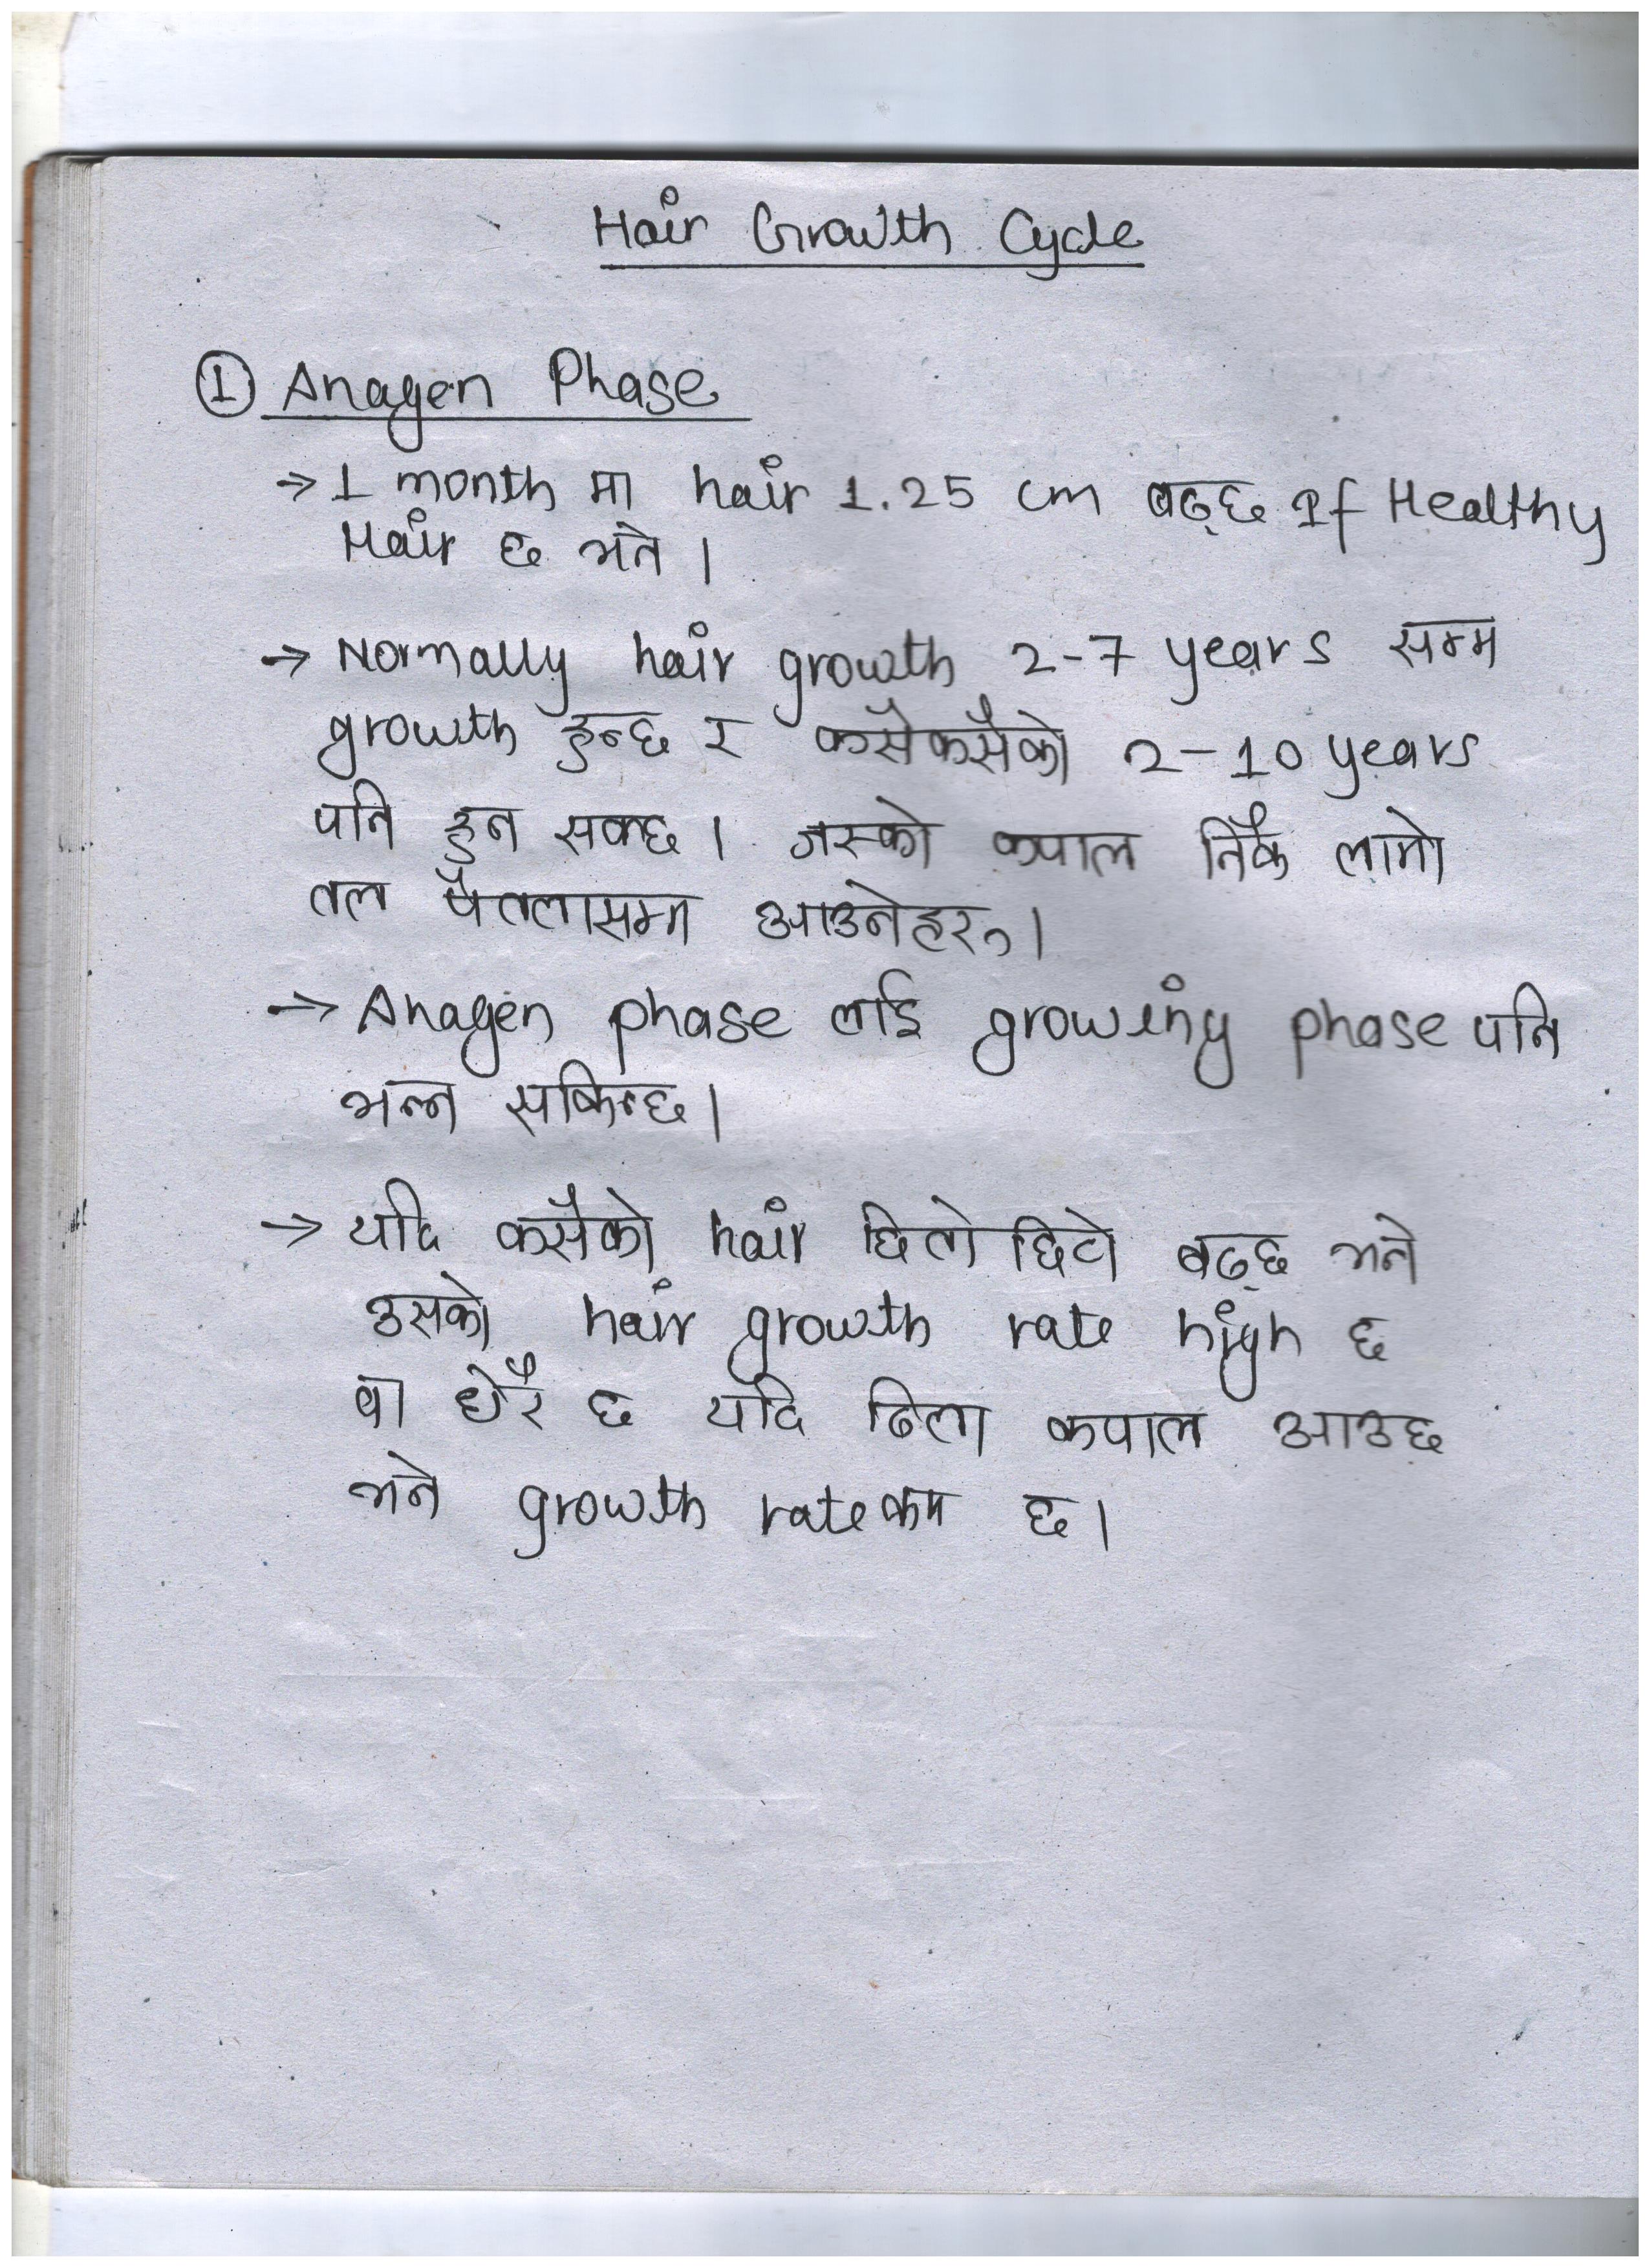 Hair Growth Cycle
① Anagen Phase
→ 1 month मा hair 1.25 cm बढ्छ If Healthy
Hair छ भने ।
→ Normally hair growth 2-7 years सम्म
growth हुन्छ र कसैकसैको 2-10 years
पनि हुन सक्छ । जस्को कपाल निकै लामो
तल पैतलासम्म आउनेहरु ।
→ Anagen phase लाई growing phase पनि
भन्न सकिन्छ ।
→ यदि कसैको hair छिटो छिटो बढ्छ भने
उसको hair growth rate high छ
वा धेरै छ यदि ढिला कपाल आउछ
भने growth rate कम छ ।